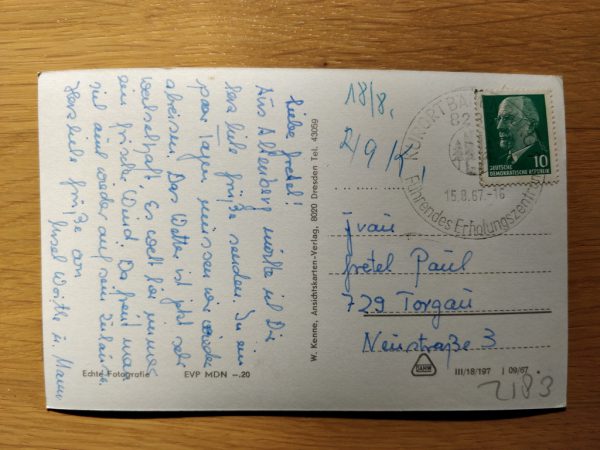 Liebe Gretel!
Aus Altenberg möchte ich Dir
herzliche Grüße senden. In ein
paar Tagen müssen wir wieder
abreisen. Das Wetter ist jetzt sehr
wechselhaft. Es weht hier immer
ein frischer Wind. Da freut man
sich auch wieder auf sein Zuhause.
Herzliche Grüße an
u. Mann
Echte Fotografie
EVP MDN -.20
W. Kenne, Ansichtskarten-Verlag, 8020 Dresden Tel. 43059
18/8.
2/9 K.
KURORT BA
82
15.8.67.-16
Führendes Erholungszentru
DEUTSCHE
DEMOKRATISCHE REPUBLIK
10
Frau
Gretel Paul
729 Torgau
Neustraße 3
III/18/197 J 09/67
2183